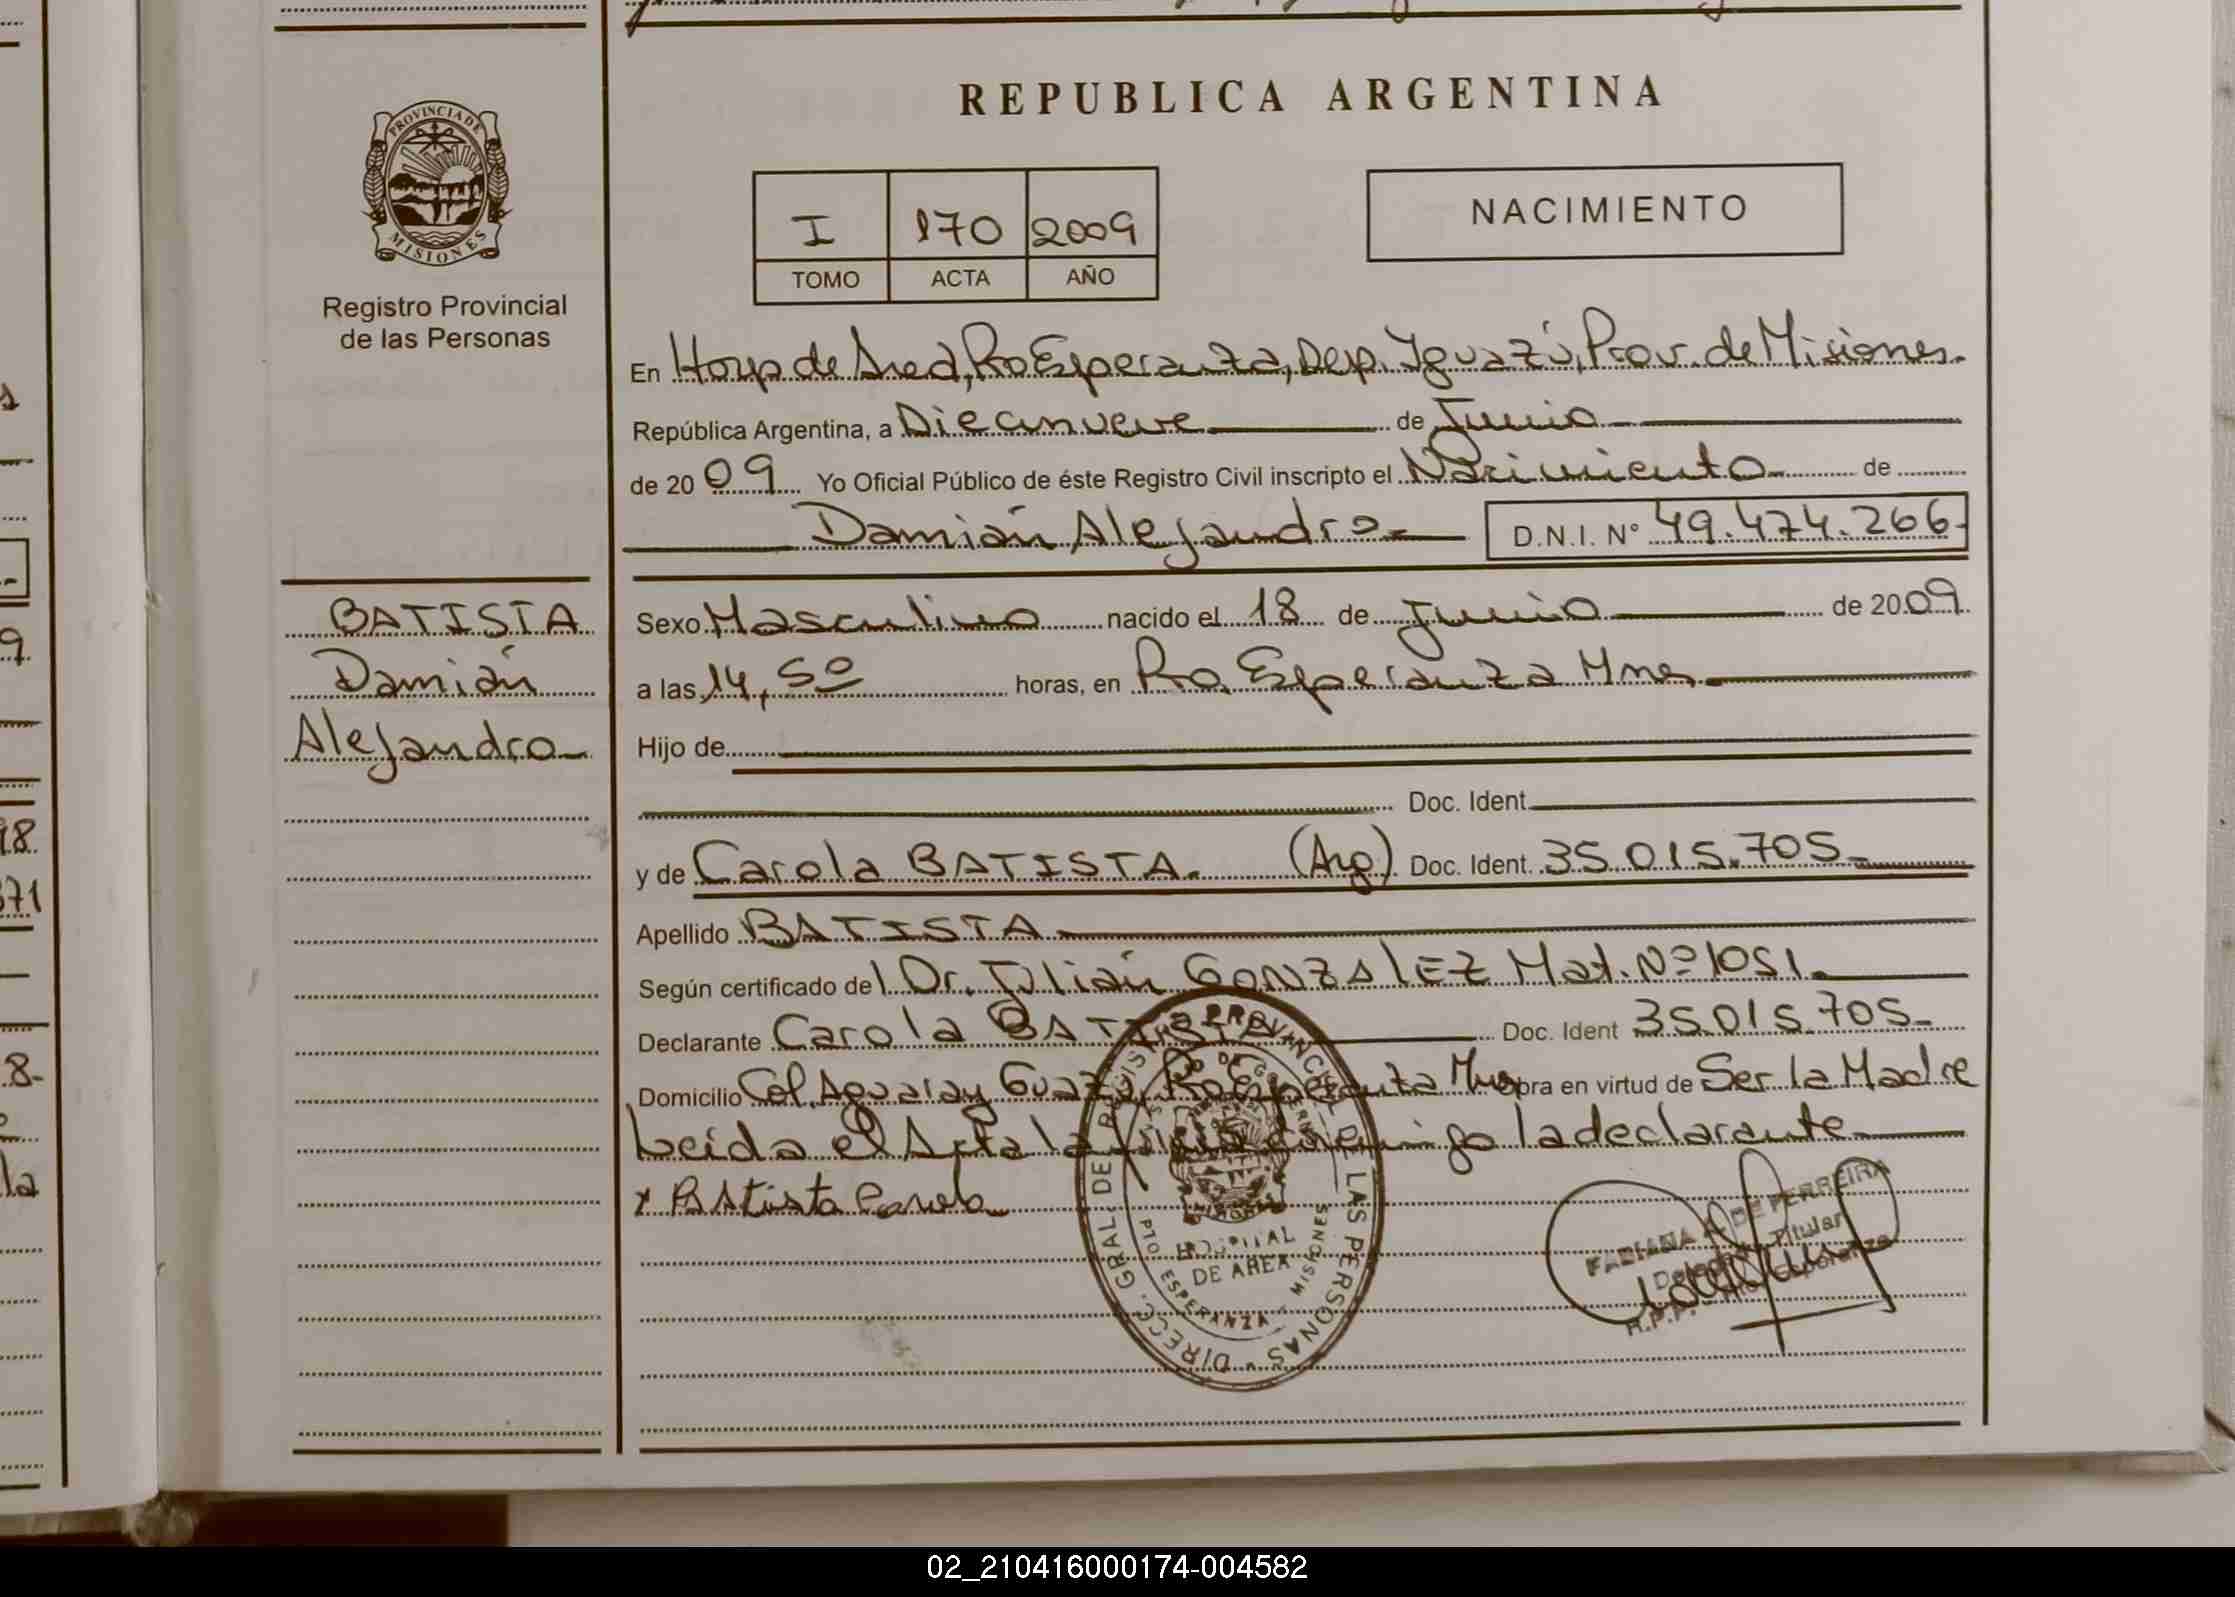 REPUBLICA ARGENTINA
PROVINCIA DE MISIONES
Registro Provincial
de las Personas
I 170 2009
TOMO ACTA AÑO
NACIMIENTO
En Hosp de Area, Pto Esperanza, Dep. Iguazú, Prov. de Misiones.
República Argentina, a Diecinueve de Junio
de 2009 Yo Oficial Público de éste Registro Civil inscripto el Nacimiento de
Damián Alejandro D.N.I. N° 49.474.266
BATISTA
Damián
Alejandro
Sexo Masculino nacido el 18 de Junio de 2009
a las 14,50 horas, en Pto. Esperanza Mnes
Hijo de
Doc. Ident.
y de Carola BATISTA. (Arg) Doc. Ident. 35.015.705
Apellido BATISTA
Según certificado del Dr. Julián GONZALEZ Mat. Nº 1051.
Declarante Carola BATISTA Doc. Ident 35.015.705
Domicilio Col. Aguaray Guazú, Pto Esperanza Mnes obra en virtud de Ser la Madre
Leída el Acta la firma conmigo la declarante
x BAtista Carola
DIRECC. GRAL. DE REGISTRO PROVINCIAL DE LAS PERSONAS
HOSPITAL
DE AREA
PTO ESPERANZA - MISIONES
FABIANA A. DE FERREIRA
Titular
02_210416000174-004582